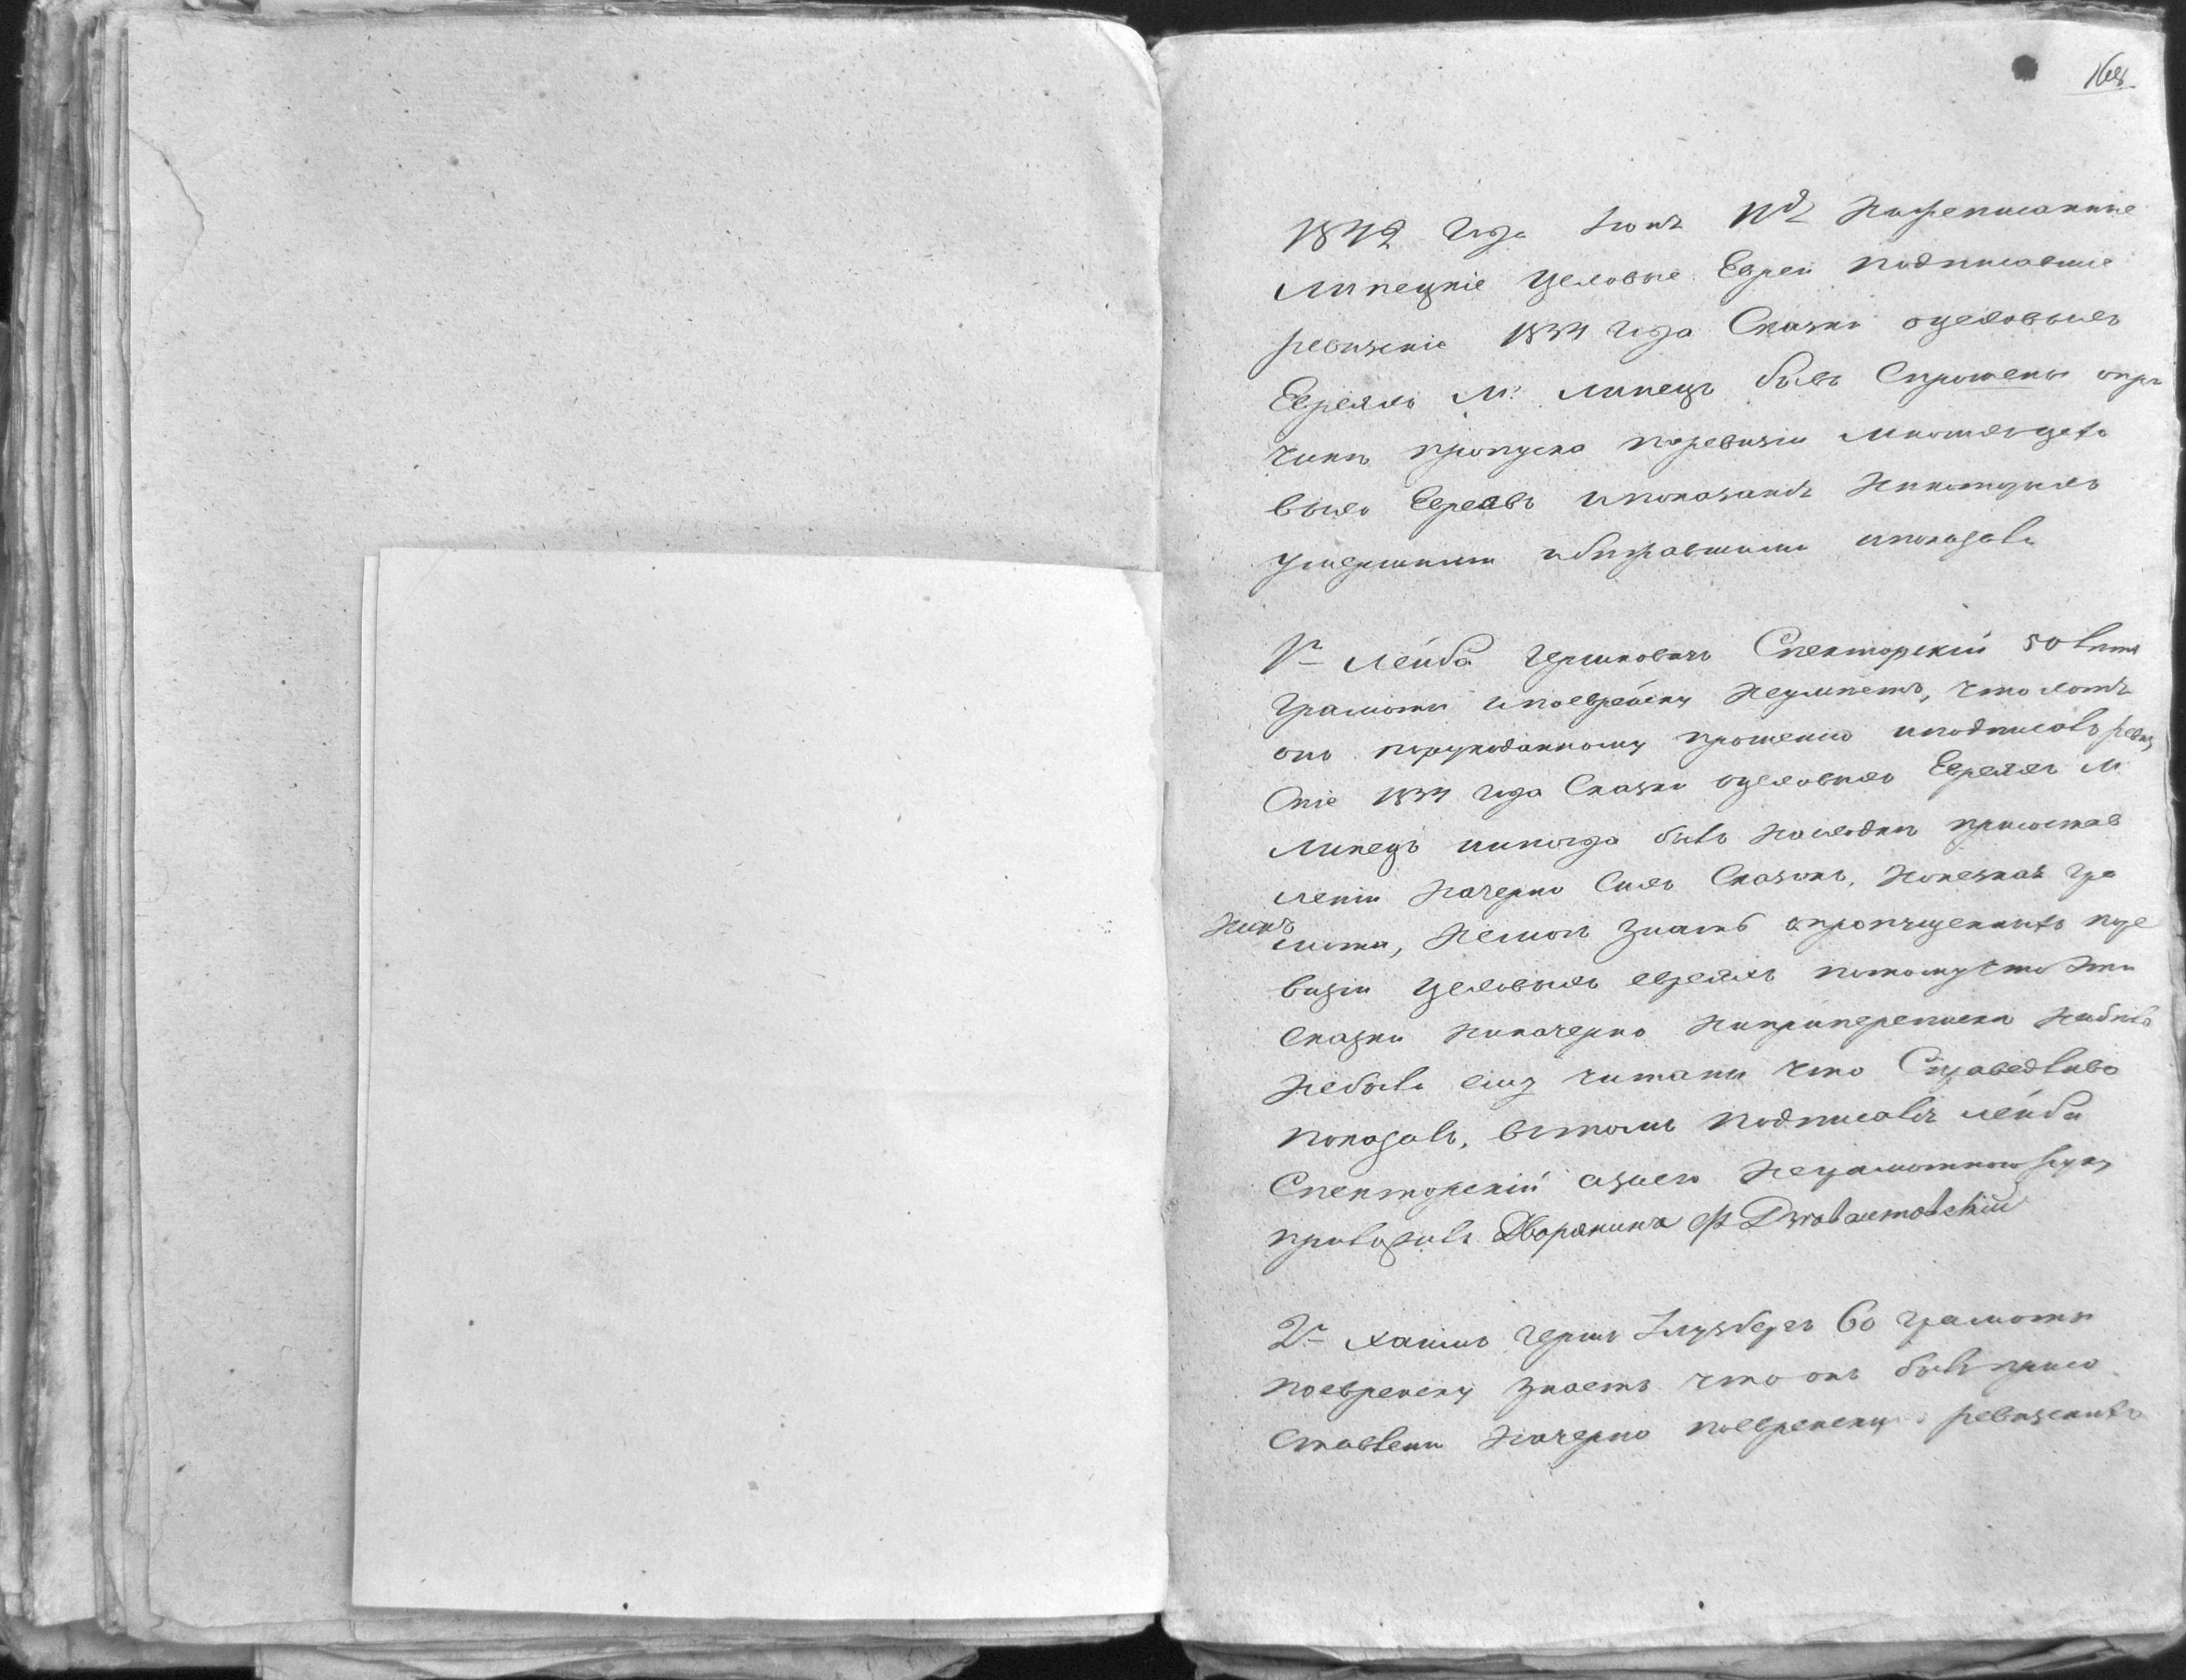 168
1842 года Іюня 11д нижеписанные
Липецкіе цеховые Евреи подписавшіе
ревизскіе 1834 года Сказки о цеховыхъ
Евреяхъ м: Липецъ бывъ Спрошены о при
чинѣ пропуска по ревизіи многихъ цехо
выхъ Евреевъ и показанія никоторыхъ
умершими и показали
1е Лейба Гершковичъ Спекторскій 50 лѣтъ
Грамоты и поеврейску неумѣетъ, что хотя
онъ порукоданному прошенію и подписалъ ревиз
Скіе 1834 года Сказки о цеховыхъ Евреяхъ м
Липецъ и иногда былъ находим при состав
леніи начерно Сихъ Сказокъ, но незная гра
моты, немогъ знать опропущенныхъ поре
визіи цеховыхъ евреяхъ потомучто Эти
Сказки ни начерно ни при перепискѣ набѣло
небыли ему читаны что Справедливо
показалъ, въ томъ подписался Лейба
Спекторскій а за его неграмотного руку
приложилъ Дворянинъ
2е Хаимъ Гершъ Гинзбергъ 60 грамоты
поеврейску знаетъ что онъ былъ при со
ставлени начерно поеврейску ревизскихъ